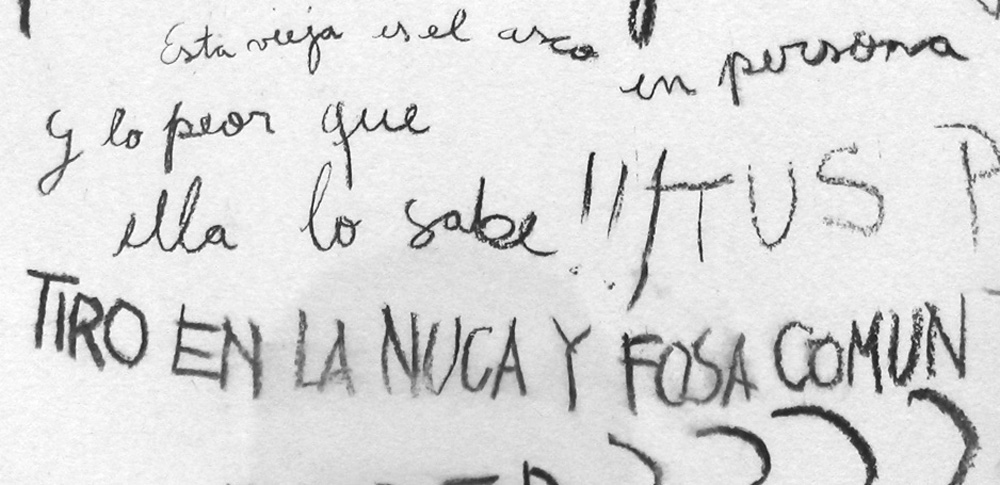 Esta vieja es el asco en persona
y lo peor que
ella lo sabe !!!
TUS
TIRO EN LA NUCA Y FOSA COMUN